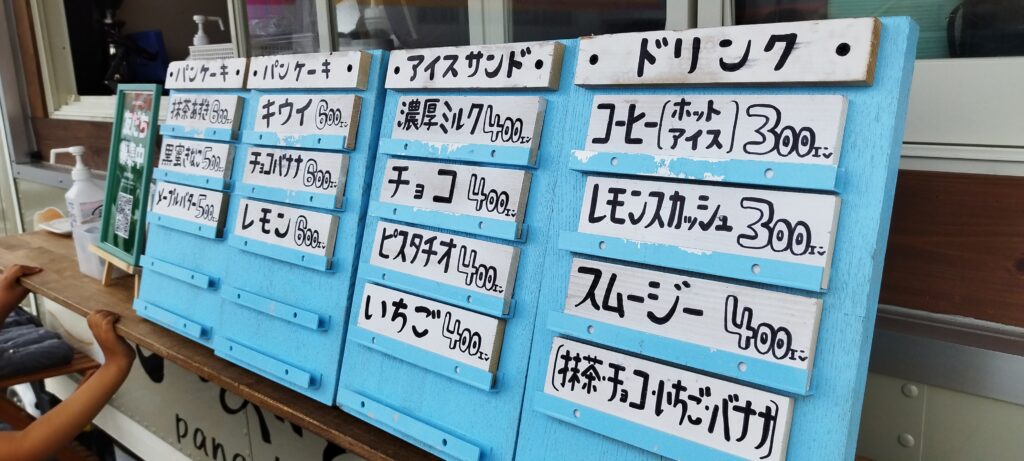 パンケーキ
抹茶あずき 600
黒蜜きなこ 500
メープルバター 500
パンケーキ
キウイ 600エン
チョコバナナ 600エン
レモン 600エン
アイスサンド
濃厚ミルク 400エン
チョコ 400エン
ピスタチオ 400エン
いちご 400エン
ドリンク
コーヒー(ホット
アイス) 300エン
レモンスカッシュ 300エン
スムージー 400エン
(抹茶・チョコ・いちご・バナナ)
pan